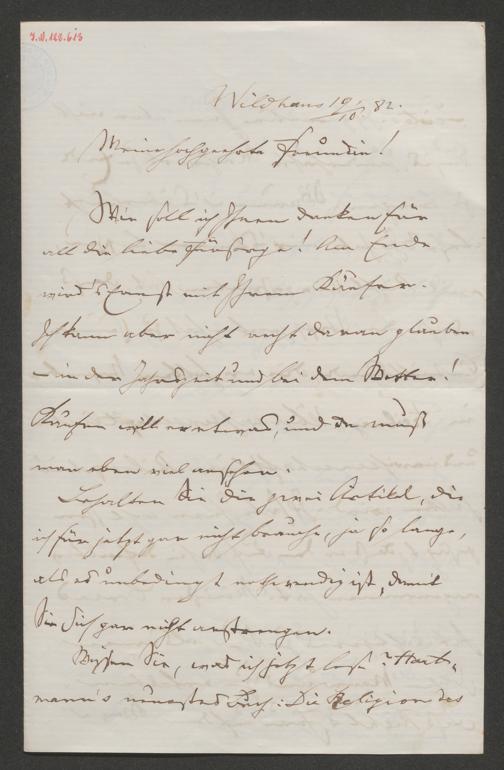 I.N. 188.613
Wildhaus 19/10. 82.
Meine hochgeehrte Freundin!
Wie soll ich Ihnen danken für
all die liebe Fürsorge! Am Ende
wird's Ernst mit Ihrem Käufer.
Ich kann aber nicht recht daran glauben
– in der Jahreszeit und bei dem Wetter!
Kaufen will er etwas, und da muß
man eben viel ansehen.
Behalten Sie die zwei Artikel, die
ich für jetzt gar nicht brauche, ja so lange,
als es unbedingt nothwendig ist, damit
Sie Sich gar nicht anstrengen.
Wissen Sie, was ich jetzt lese? Hart-
mann's neuestes Buch: Die Religion des